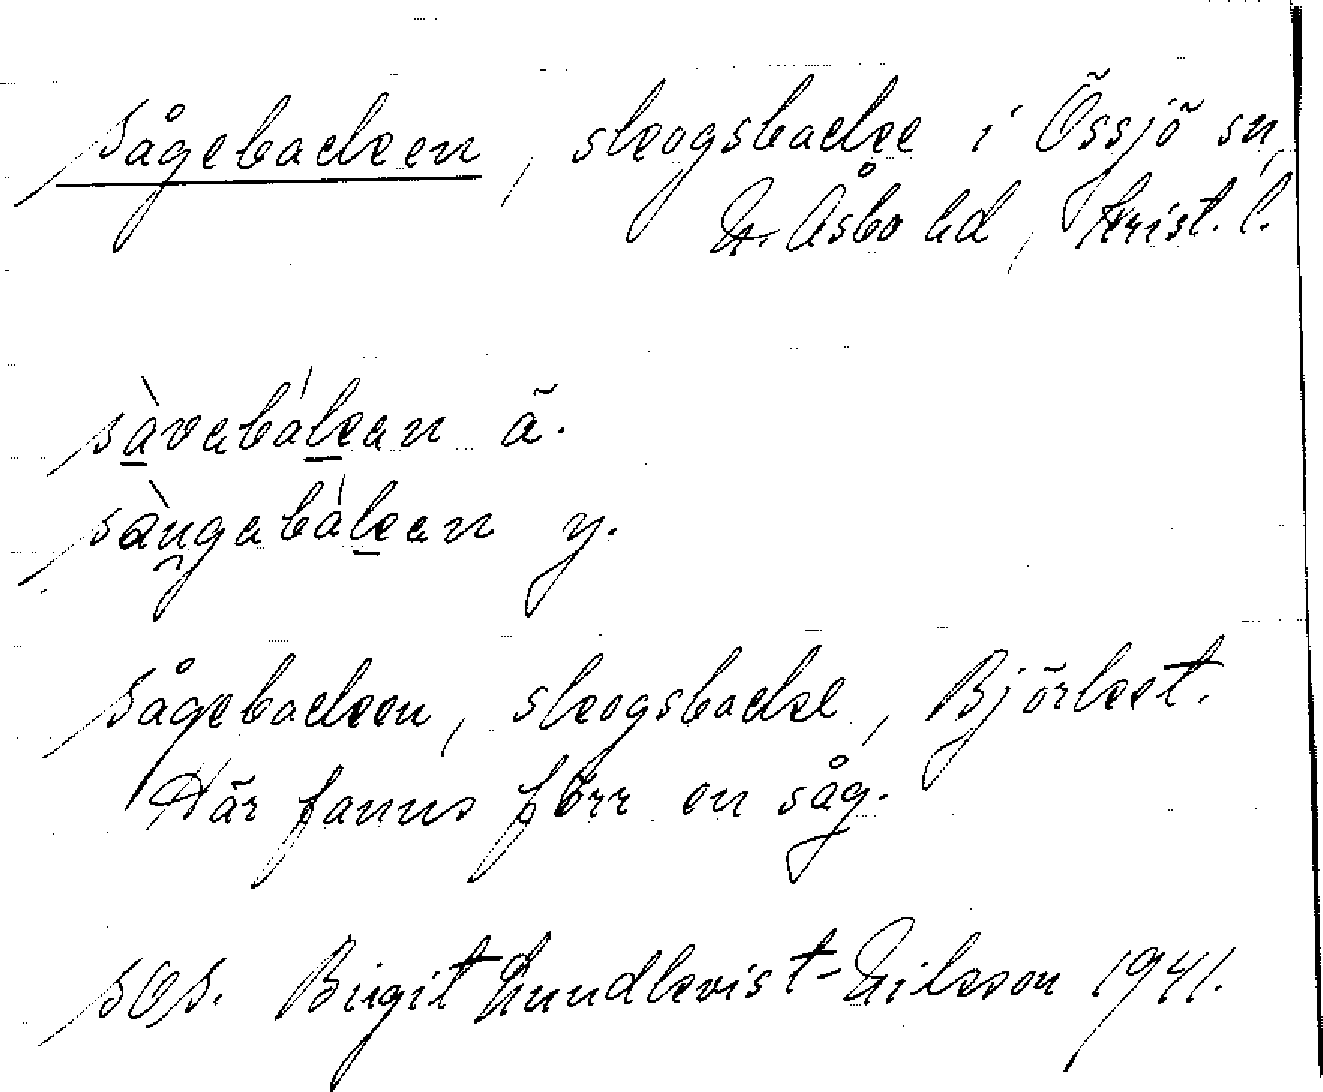 Sågebacken, skogsbacke i Össjö sn,
N. Åsbo hd, Krist. l.
sàvabákan ä.
sàŋgabákan y.
Sågebacken, skogsbacke, Björket.
Här fanns förr en såg.
SOS. Birgit Lundkvist-Nilsson 1941.